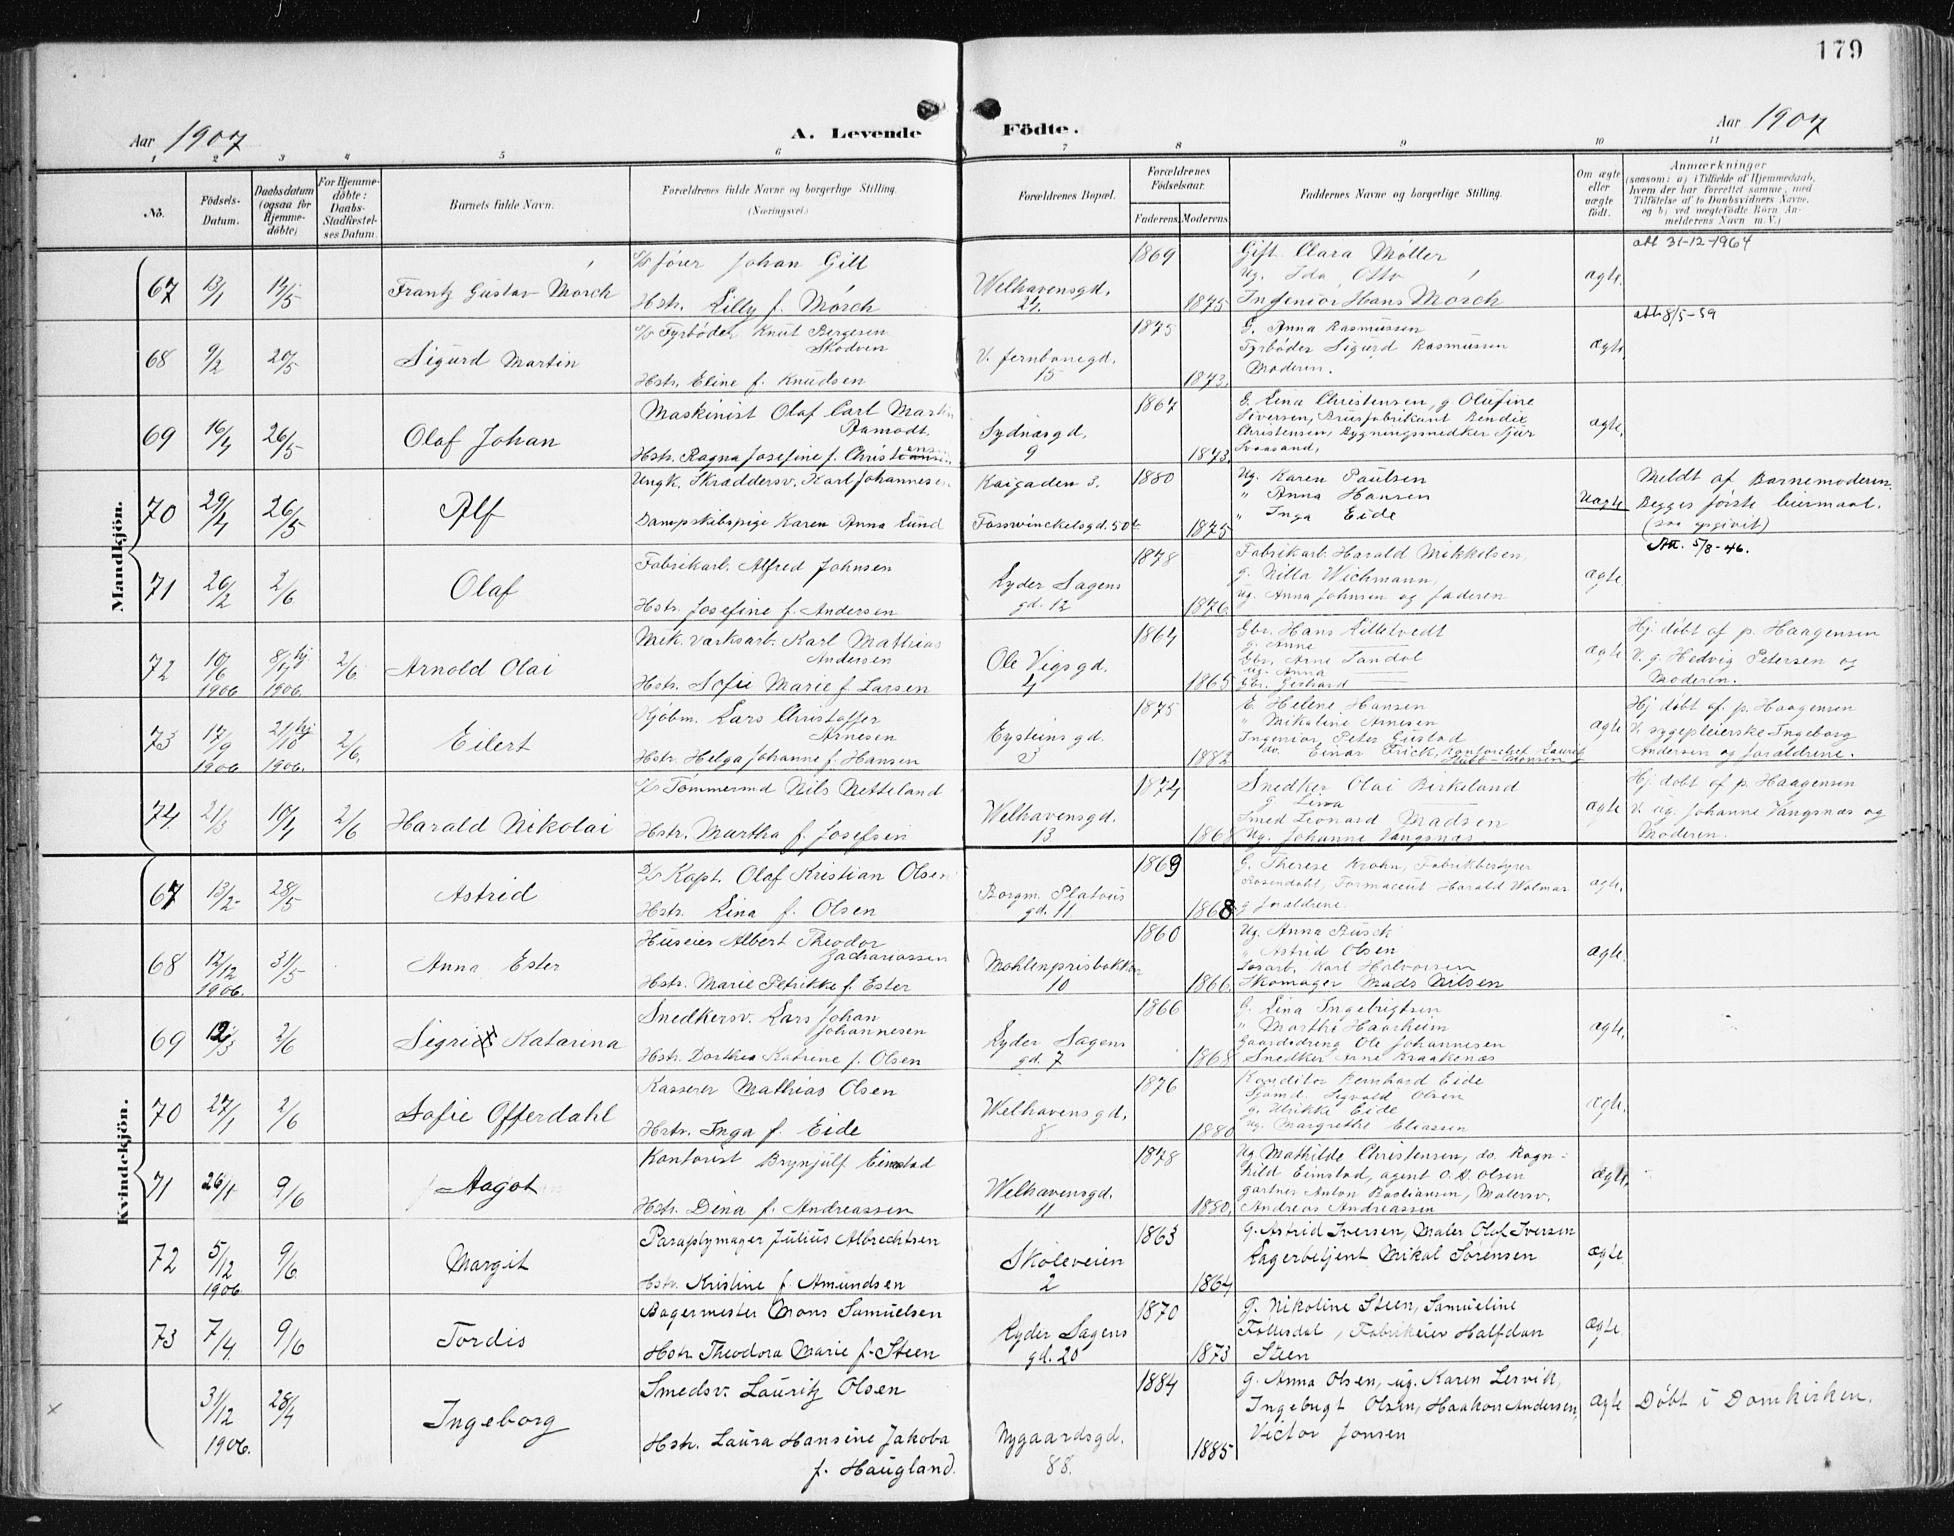 179
Aar 1907
A. Levende
Födte.
Aar 1907
1 2 3 4 5 6 7 8 9 10 11
No.
Födsels-
Datum.
Daabsdatum
(ogsaa for
Hjemme-
döbte)
For Hjemme-
döbte:
Daabs-
Stadfæstel-
ses Datum.
Barnets fulde Navn.
Forældrenes fulde Navne og borgerlige Stilling.
(Næringsvei.)
Forældrenes Bopæl.
Forældrenes
Födselsaar.
Faderens. Moderens.
Faddernes Navne og borgerlige Stilling.
Om ægte
eller
uægte
födt.
Anmærkninger
(saasom: a) i Tilfælde af Hjemmedaab,
hvem der har forrettet samme, med
Tilföielse af to Daabsvidners Navne,
og b) ved uægtefödte Börn An-
melderens Navn m. V.)
Mandkjön.
67 13/1 14/5 Frantz Gustav Mörch
S/S förer Johan Gill
Hstr. Lilly f. Mörch
Welhavensgd.
24.
1869
1875
Gift Clara Møller
Ug. Ida Otto
Ingeniör Hans Mörch
ægte.
att 31-12-1964
68 9/2 20/5 Sigurd Martin
S/S Fyrbøder Knut Bergesen
Skodven
Hstr. Eline f. Knudsen
V. Jernbanegd.
15
1875
1873.
G. Anna Rasmussen
Fyrbøder Sigurd Rasmussen
Moderen.
ægte
att 8/5-59
69 16/4 26/5 Olaf Johan
Maskinist Olaf Carl Martin
Ramodt.
Hstr. Ragna Josefine f. Christiansen
Sydnæsgd.
9
1867
1873.
G. Lina Christensen, g. Olufine
Siversen, Brusfabrikant Bendix
Christensen, Bygningssnedker Sjur
Svaasand.
ægte.
70 29/4 26/5 Alf
Ungk. Skræddersv. Karl Johannesen
Dampskibspige Karen Anna Lund
Kaigaden 3.
Fosswinckelsgd. 50
1880
1875
Ug. Karen Paulsen
" Anna Hansen
" Inga Eide
Uægte
Meldt af Barnemoderen.
Begges første leiermaal.
(saa opgivit)
71 26/2 2/6 Olaf
Fabrikarb. Alfred Johnsen
Hstr. Josefine f. Andersen
Lyder Sagens
gd. 12
1878
1876.
Fabrikarb. Harald Mikkelsen,
g. Nilla Wichmann,
Ug. Anna Johnsen og faderen
ægte
Att. 5/8-46.
72 10/6 1906 8/7 hj 1906. 2/6 Arnold Olai
Mek. værksarb. Karl Mathias
Andersen
Hstr. Sofie Marie f. Larsen
Ole Vigs gd.
4
1864
1865
Gbr. Hans Lilletvedt
g. Anne
Gbr. Arne Sandal
ug. Anna
Gbr. Gerhard
ægte
Hj. døbt af p. Haagensen
V. g. Hedvig Petersen og
Moderen.
73 17/9 1906 21/10 hj 1906. 2/6. Eilert
Kjøbm. Lars Christoffer
Arnesen
Hstr. Helga Johanne f. Hansen
Eysteins gd.
3
1875
1882
E. Helene Hansen
" Mikaline Arnesen
Ingeniör Peter Gustad
do. Einar Frick, Kontorchef Laurits
ægte
Hj. døbt af p. Haagensen
V. sygepleierske Ingeborg
Andersen og forældrene.
74. 21/3 10/4 2/6 Harald Nikolai
S/S Tömmermd Nils Netteland
Hstr. Martha f. Josefsen
Welhavensgd.
13
1874
1868
Snedker Olai Birkeland
g. Lina
Smed Leonard Madsen
Ug. Johanne Vangsnæs
ægte
Hj. døbt af p. Haagensen
V. ug. Johanne Vangsnæs og
Moderen.
Kvindekjön.
67 13/2 28/5 Astrid
S/S Kapt. Olaf Kristian Olsen
Hstr. Lina f. Olsen
Borgm. Platous
gd. 11
1869
1868
G. Therese Krohn, Fabrikbestyrer
Rosendahl, Farmaceut Harald Walmar
g forældrene.
ægte.
68 12/12 1906. 31/5 Anna Ester
Huseier Albert Theodor
Zachariassen
Hstr. Marie Petrikke f. Ester
Møhlenprisbakken
10
1860
1866.
Ug. Anna Busch
" Astrid Olsen
Løsarb. Karl Halvorsen
Skomager Mads Nilsen
ægte.
69 12/3 2/6 Sigrid Katarina
Snedkersv. Lars Johan
Johannesen
Hstr. Dorthea Katrine f. Olsen
Lyder Sagens
gd. 7
1866
1868
G. Lina Ingebrigtsen
" Marthe Haarheim
Gaardsdreng Ole Johannesen
Snedker Arne Kraakenæs
ægte.
70 27/1 2/6 Sofie Offerdahl
Kasserer Mathias Olsen
Hstr. Inga f. Eide
Welhavens gd.
8
1876
1880
Konditor Bernhard Eide
Sjømd. Sigvald Olsen
g. Ulrikke Eide
ug. Margrethe Eliassen
ægte.
71 26/1 9/6 Aagot
Kontorist Brynjulf Eimstad
Hstr. Dina f. Andreassen
Welhavensgd.
11
1878
1880.
Ug. Mathilde Christensen, do. Ragn-
hild Eimstad, agent O. A. Olsen
gartner Anton Bastiansen, Malersv.
Andreas Andreassen
ægte.
72 5/12 1906 9/6 Margit
Paraplymager Julius Albrechtsen
Hstr. Kristine f. Amundsen
Skoleveien
2
1863
1864
g. Astrid Iversen, Maler Olaf Iversen
Lagerbetjent Mikal Sørensen
ægte
73 7/4 9/6 Tordis
Bagermester Mons Samuelsen
Hstr. Theodora Marie f. Steen
Lyder Sagens
gd. 20
1870
1873
g. Nikoline Steen, Samueline
Follesdal, Fabrikeier Halfdan
Steen
ægte
x 31/12 1906. 28/4 Ingeborg
Smedsv. Lauritz Olsen
Hstr. Laura Hansine Jakoba
f. Haugland.
Nygaardsgd.
88.
1884
1885
g. Anna Olsen, ug. Karen Lesvik,
Ingebrigt Olsen, Haakon Andersen,
Victor Jonsen
ægte
Døbt i Domkirken.